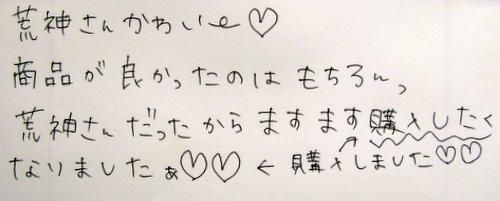 荒神さんかわいー♡
商品が良かったのはもちろんっ
荒神さんだったからますます購入したく
なりましたぁ♡♡ ← 購入しました♡♡